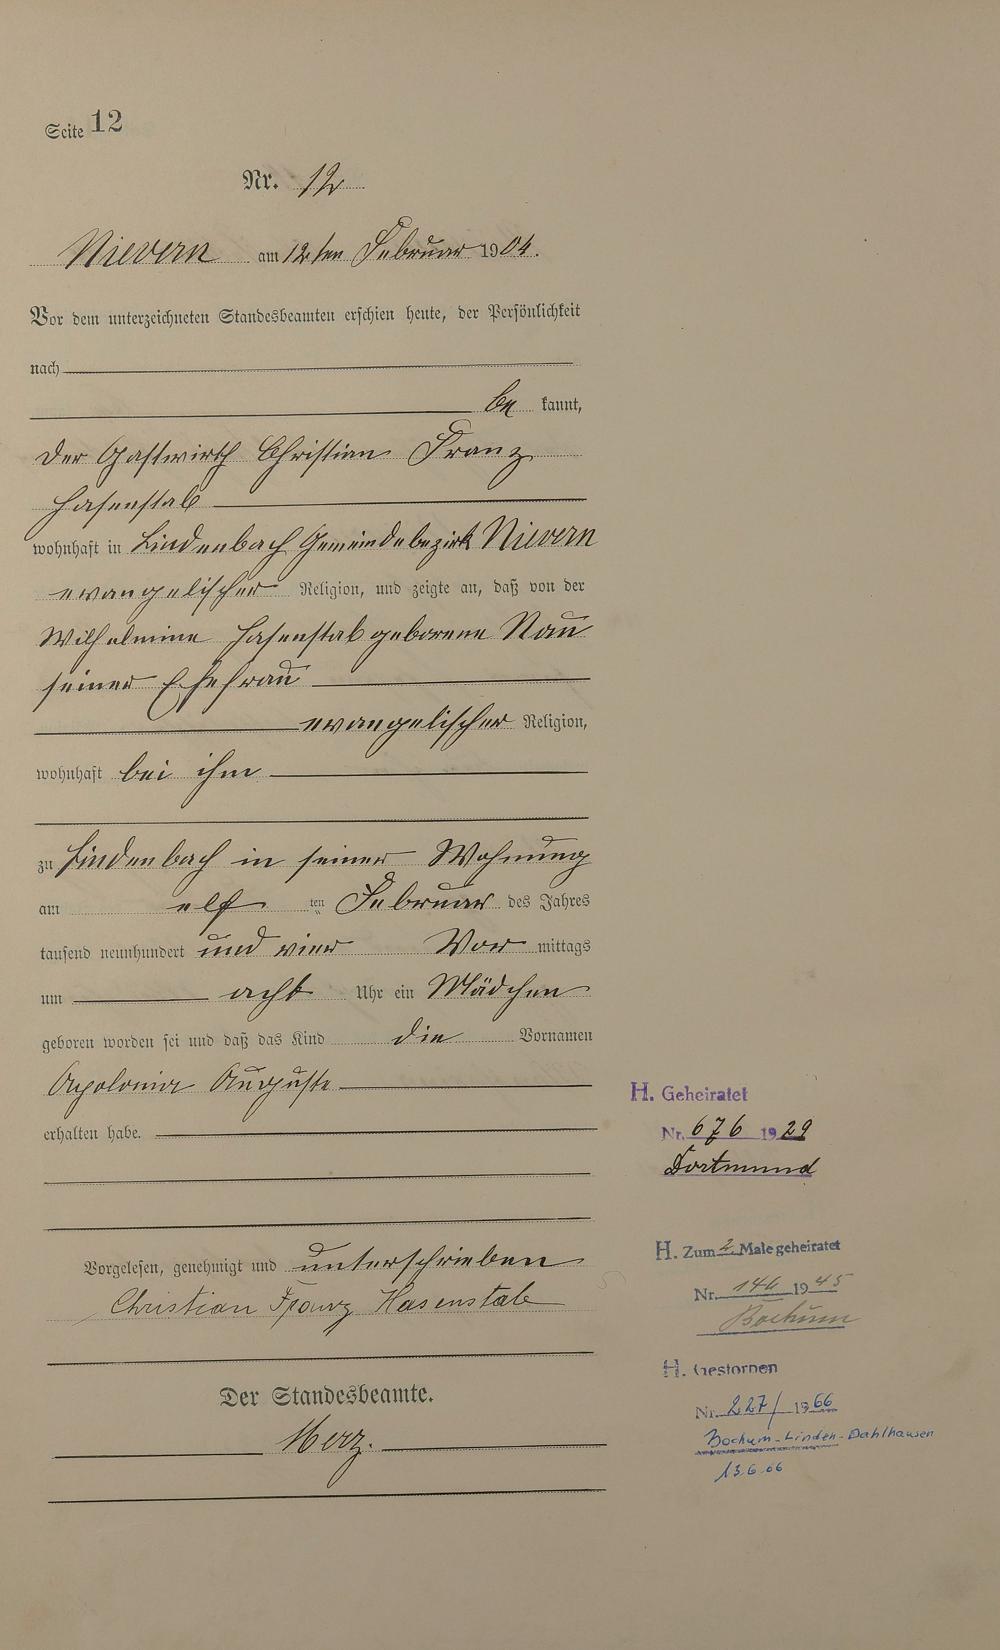 Seite 12
Nr. 12
Nievern am 12ten Februar 1904.
Vor dem unterzeichneten Standesbeamten erschien heute, der Persönlichkeit
nach
be kannt,
der Gastwirth Christian Franz
Hasenstab
wohnhaft in Lindenbach Gemeindebezirk Nievern
evangelischer Religion, und zeigte an, daß von der
Wilhelmine Hasenstab geborene Nau
seiner Ehefrau
evangelischer Religion,
wohnhaft bei ihm
zu Lindenbach in seiner Wohnung
am elf ten Februar des Jahres
tausend neunhundert und vier Vor mittags
um acht Uhr ein Mädchen
geboren worden sei und daß das Kind die Vornamen
Apolonia Auguste
erhalten habe.
H. Geheiratet
Nr. 676 1929
Dortmund
Vorgelesen, genehmigt und unterschrieben
Christian Franz Hasenstab
H. Zum 2. Male geheiratet
Nr. 1945
Bochum
Der Standesbeamte.
Merz.
H. Gestorben
Nr. 227/1966
Bochum-Linden-Dahlhausen
13.6.66